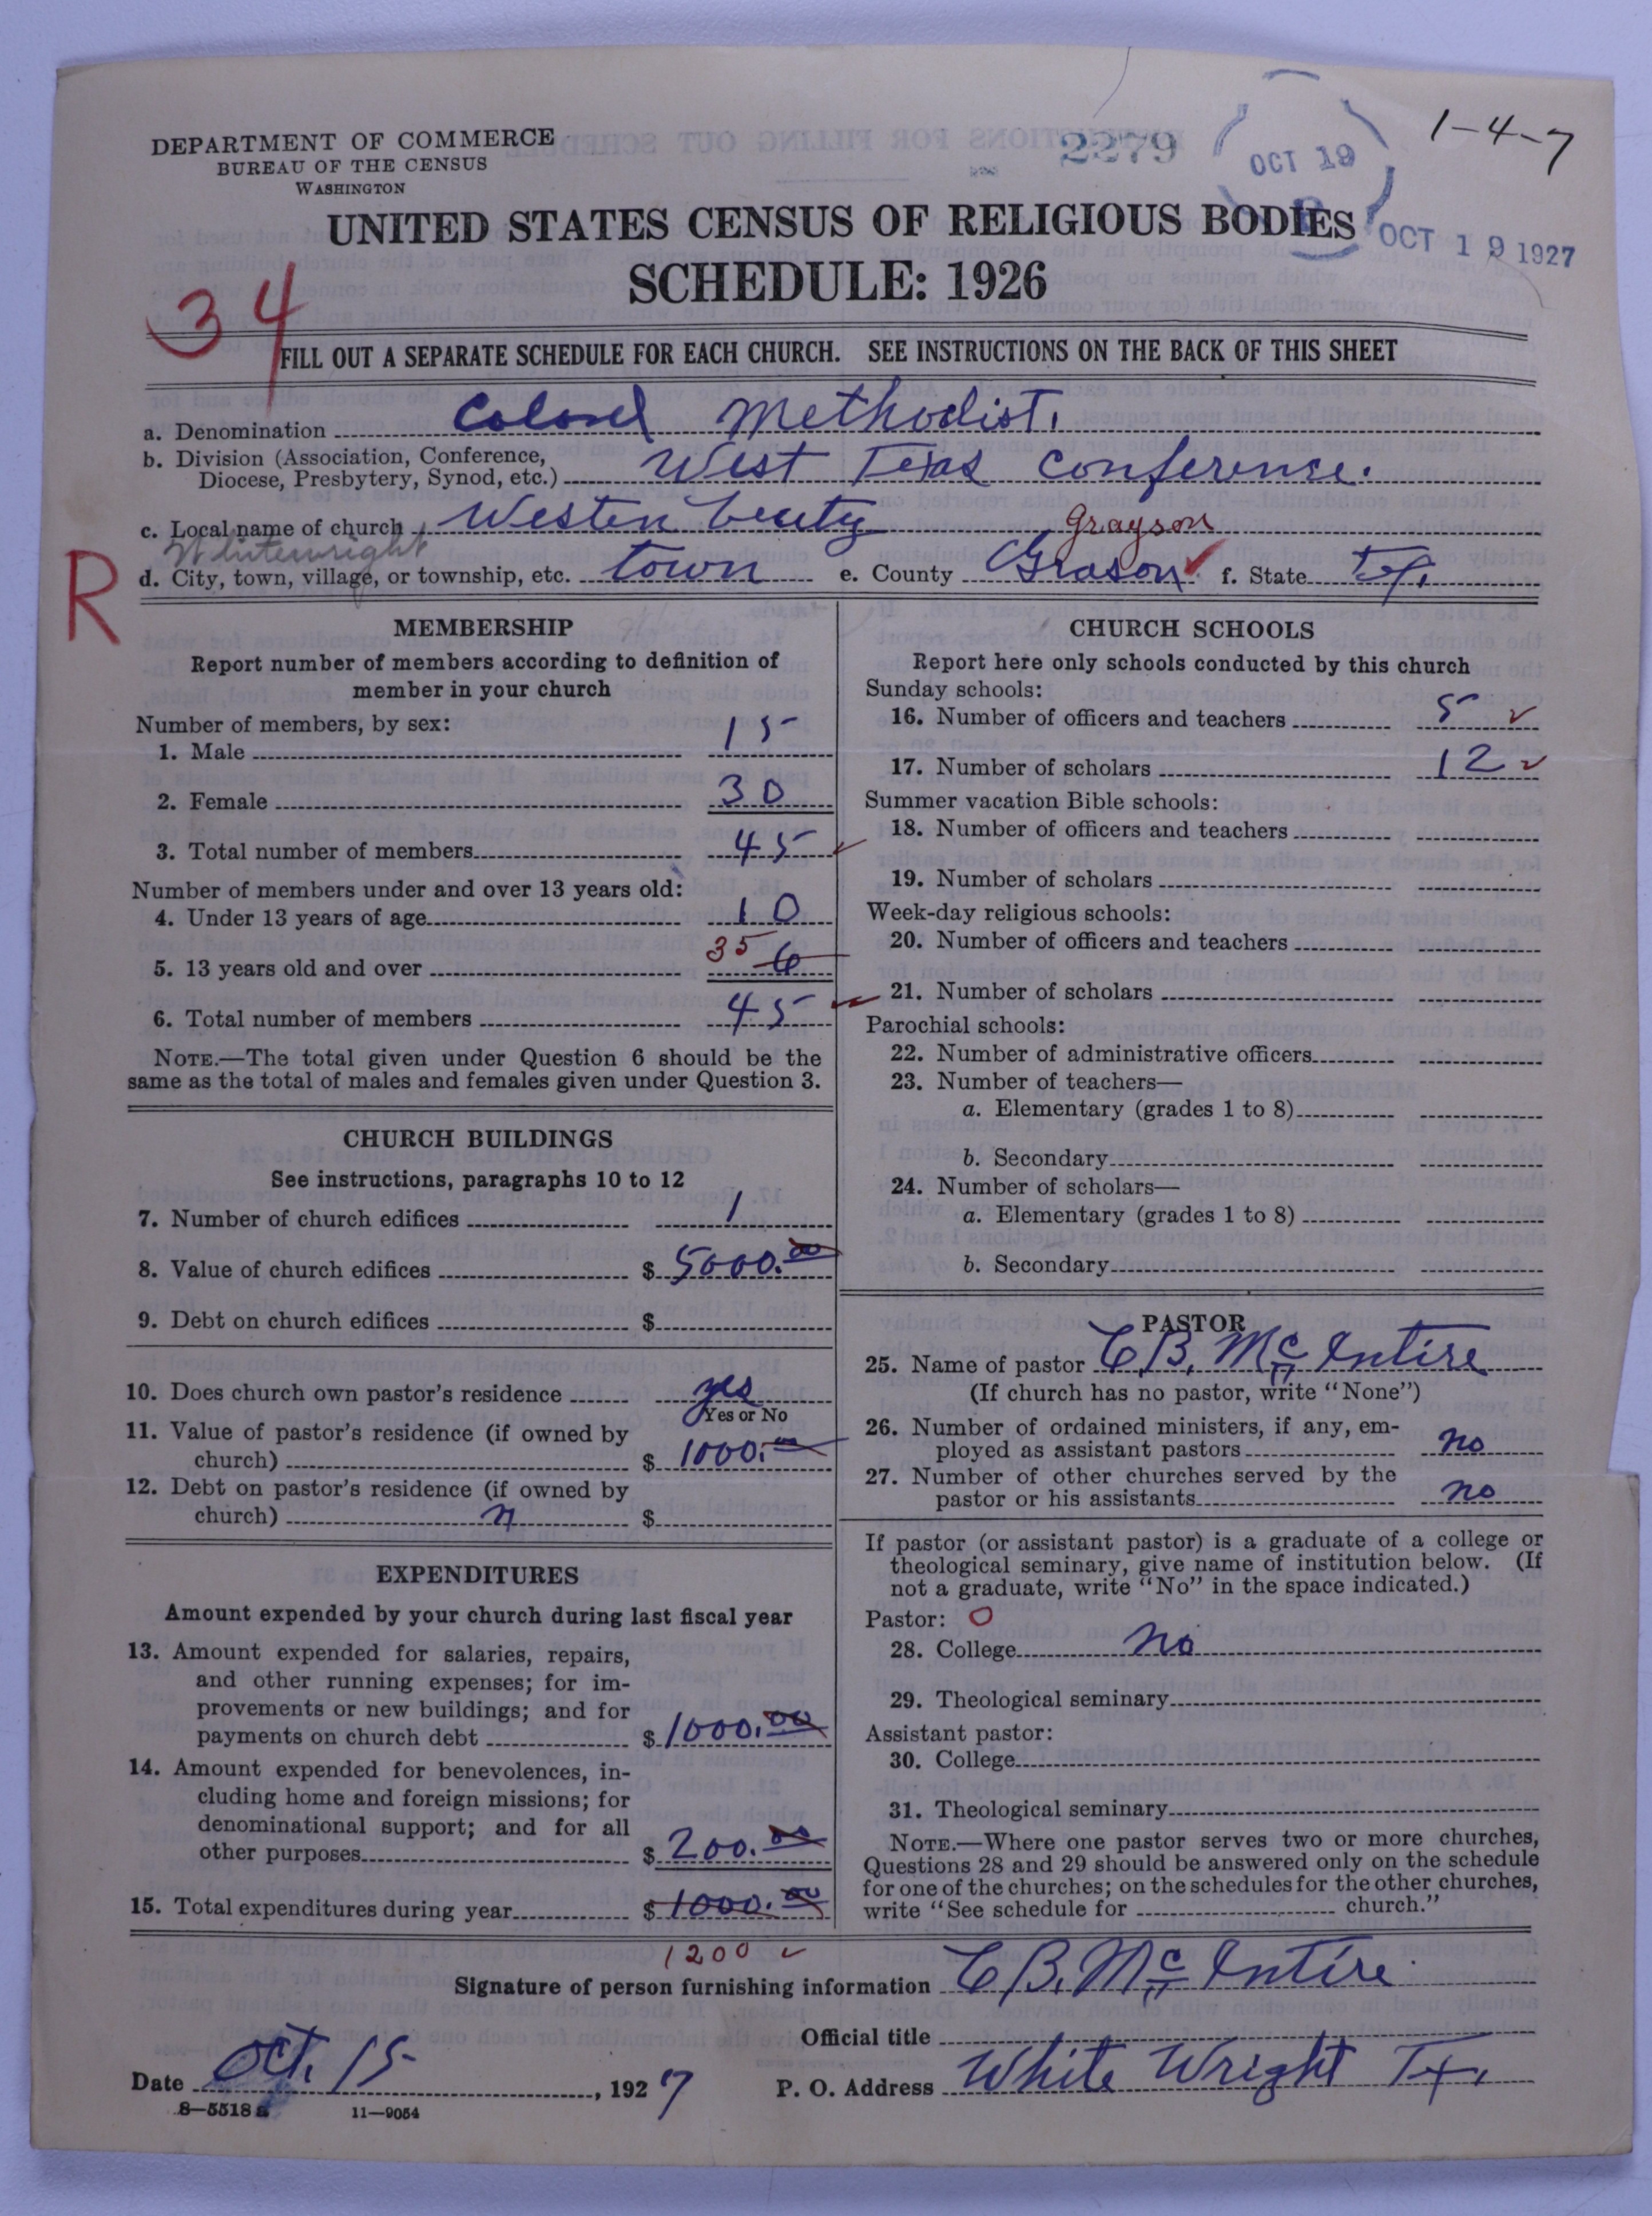 DEPARTMENT OF COMMERCE
BUREAU OF THE CENSUS
WASHINGTON
2279
OCT 19
OCT 19 1927
1-4-7
UNITED STATES CENSUS OF RELIGIOUS BODIES
SCHEDULE: 1926
34
FILL OUT A SEPARATE SCHEDULE FOR EACH CHURCH. SEE INSTRUCTIONS ON THE BACK OF THIS SHEET
a. Denomination Colord Methodist.
b. Division (Association, Conference,
Diocese, Presbytery, Synod, etc.) West Texas Conference.
c. Local name of church Westen beuty
Whitewright Grayson
R
d. City, town, village, or township, etc. town e. County Grason f. State Tx.
MEMBERSHIP
Report number of members according to definition of
member in your church
Number of members, by sex:
1. Male 15
2. Female 30
3. Total number of members 45
Number of members under and over 13 years old:
4. Under 13 years of age 10
5. 13 years old and over 35 6
6. Total number of members 45
NOTE.—The total given under Question 6 should be the
same as the total of males and females given under Question 3.
CHURCH BUILDINGS
See instructions, paragraphs 10 to 12
7. Number of church edifices 1
8. Value of church edifices $ 5000.00
9. Debt on church edifices $
10. Does church own pastor's residence yes
Yes or No
11. Value of pastor's residence (if owned by
church) $ 1000.00
12. Debt on pastor's residence (if owned by
church) n $
EXPENDITURES
Amount expended by your church during last fiscal year
13. Amount expended for salaries, repairs,
and other running expenses; for im-
provements or new buildings; and for
payments on church debt $ 1000.00
14. Amount expended for benevolences, in-
cluding home and foreign missions; for
denominational support; and for all
other purposes $ 200.00
15. Total expenditures during year $ 1000.00
1200
CHURCH SCHOOLS
Report here only schools conducted by this church
Sunday schools:
16. Number of officers and teachers 5
17. Number of scholars 12
Summer vacation Bible schools:
18. Number of officers and teachers
19. Number of scholars
Week-day religious schools:
20. Number of officers and teachers
21. Number of scholars
Parochial schools:
22. Number of administrative officers
23. Number of teachers—
a. Elementary (grades 1 to 8)
b. Secondary
24. Number of scholars—
a. Elementary (grades 1 to 8)
b. Secondary
PASTOR
25. Name of pastor C B. McIntire
(If church has no pastor, write "None")
26. Number of ordained ministers, if any, em-
ployed as assistant pastors no
27. Number of other churches served by the
pastor or his assistants no
If pastor (or assistant pastor) is a graduate of a college or
theological seminary, give name of institution below. (If
not a graduate, write "No" in the space indicated.)
Pastor: O
28. College no
29. Theological seminary
Assistant pastor:
30. College
31. Theological seminary
NOTE.—Where one pastor serves two or more churches,
Questions 28 and 29 should be answered only on the schedule
for one of the churches; on the schedules for the other churches,
write "See schedule for church."
Signature of person furnishing information C B. McIntire
Official title
Date Oct. 15, 1927 P. O. Address White Wright Tx.
8—5518 a 11—9054